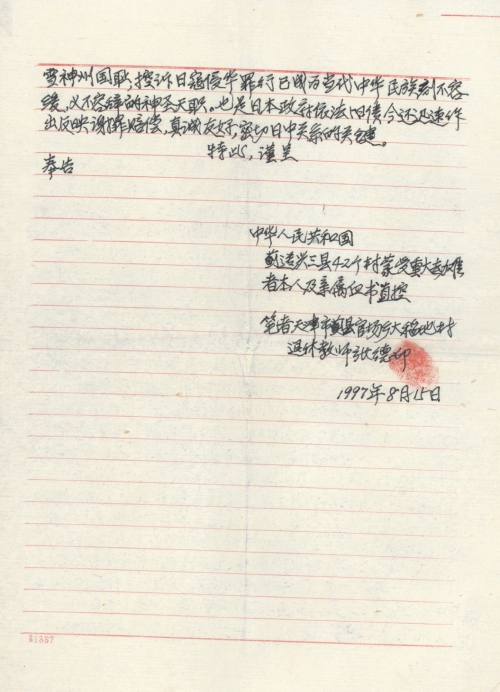 雪神州国耻,控诉日寇侵华罪行已成为当代中华民族刻不容
缓,义不容辞的神圣天职,也是日本政府依法旧债今还,迅速作
出反映谢罪赔偿,真诚友好,密切日中关系的关键。
特此,谨呈
奉告
中华人民共和国
蓟遵兴三县42个村蒙受重大
者本人及亲属血书直控
笔者天津市蓟县官场乡大稻地村
退休教师张德印
1997年8月15日
51357